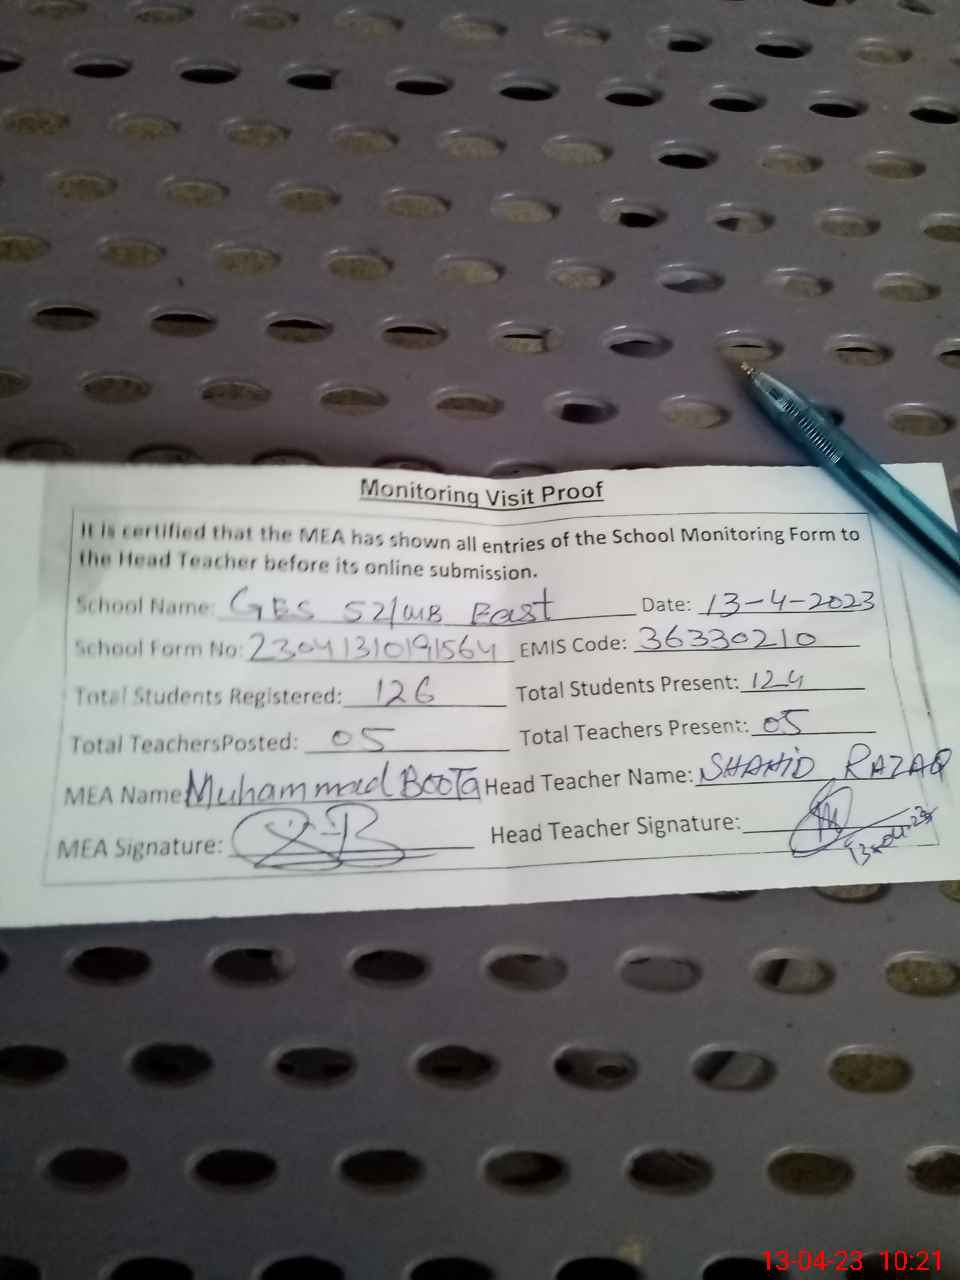 Monitoring Visit Proof
It is certified that the MEA has shown all entries of the School Monitoring Form to
the Head Teacher before its online submission.
School Name: GES 52/WB East Date: 13-4-2023
School Form No: 23041310191564 EMIS Code: 36330210
Total Students Registered: 126 Total Students Present: 124
Total TeachersPosted: 05 Total Teachers Present: 05
MEA Name Muhammad Boota Head Teacher Name: SHAHID RAZAQ
MEA Signature: Head Teacher Signature:
13-04-23
13-04-23 10:21